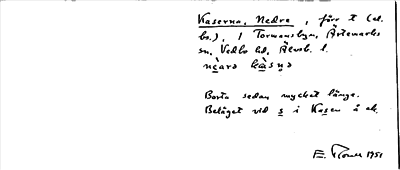 Kaserna, Nedre, förr t (el.
bs.), 1 Tormansbyn, Ärtemarks
sn, Vedbo hd, Älvsb. l.
Borta sedan mycket länge.
Beläget vid s i Kasen å ek.
1951